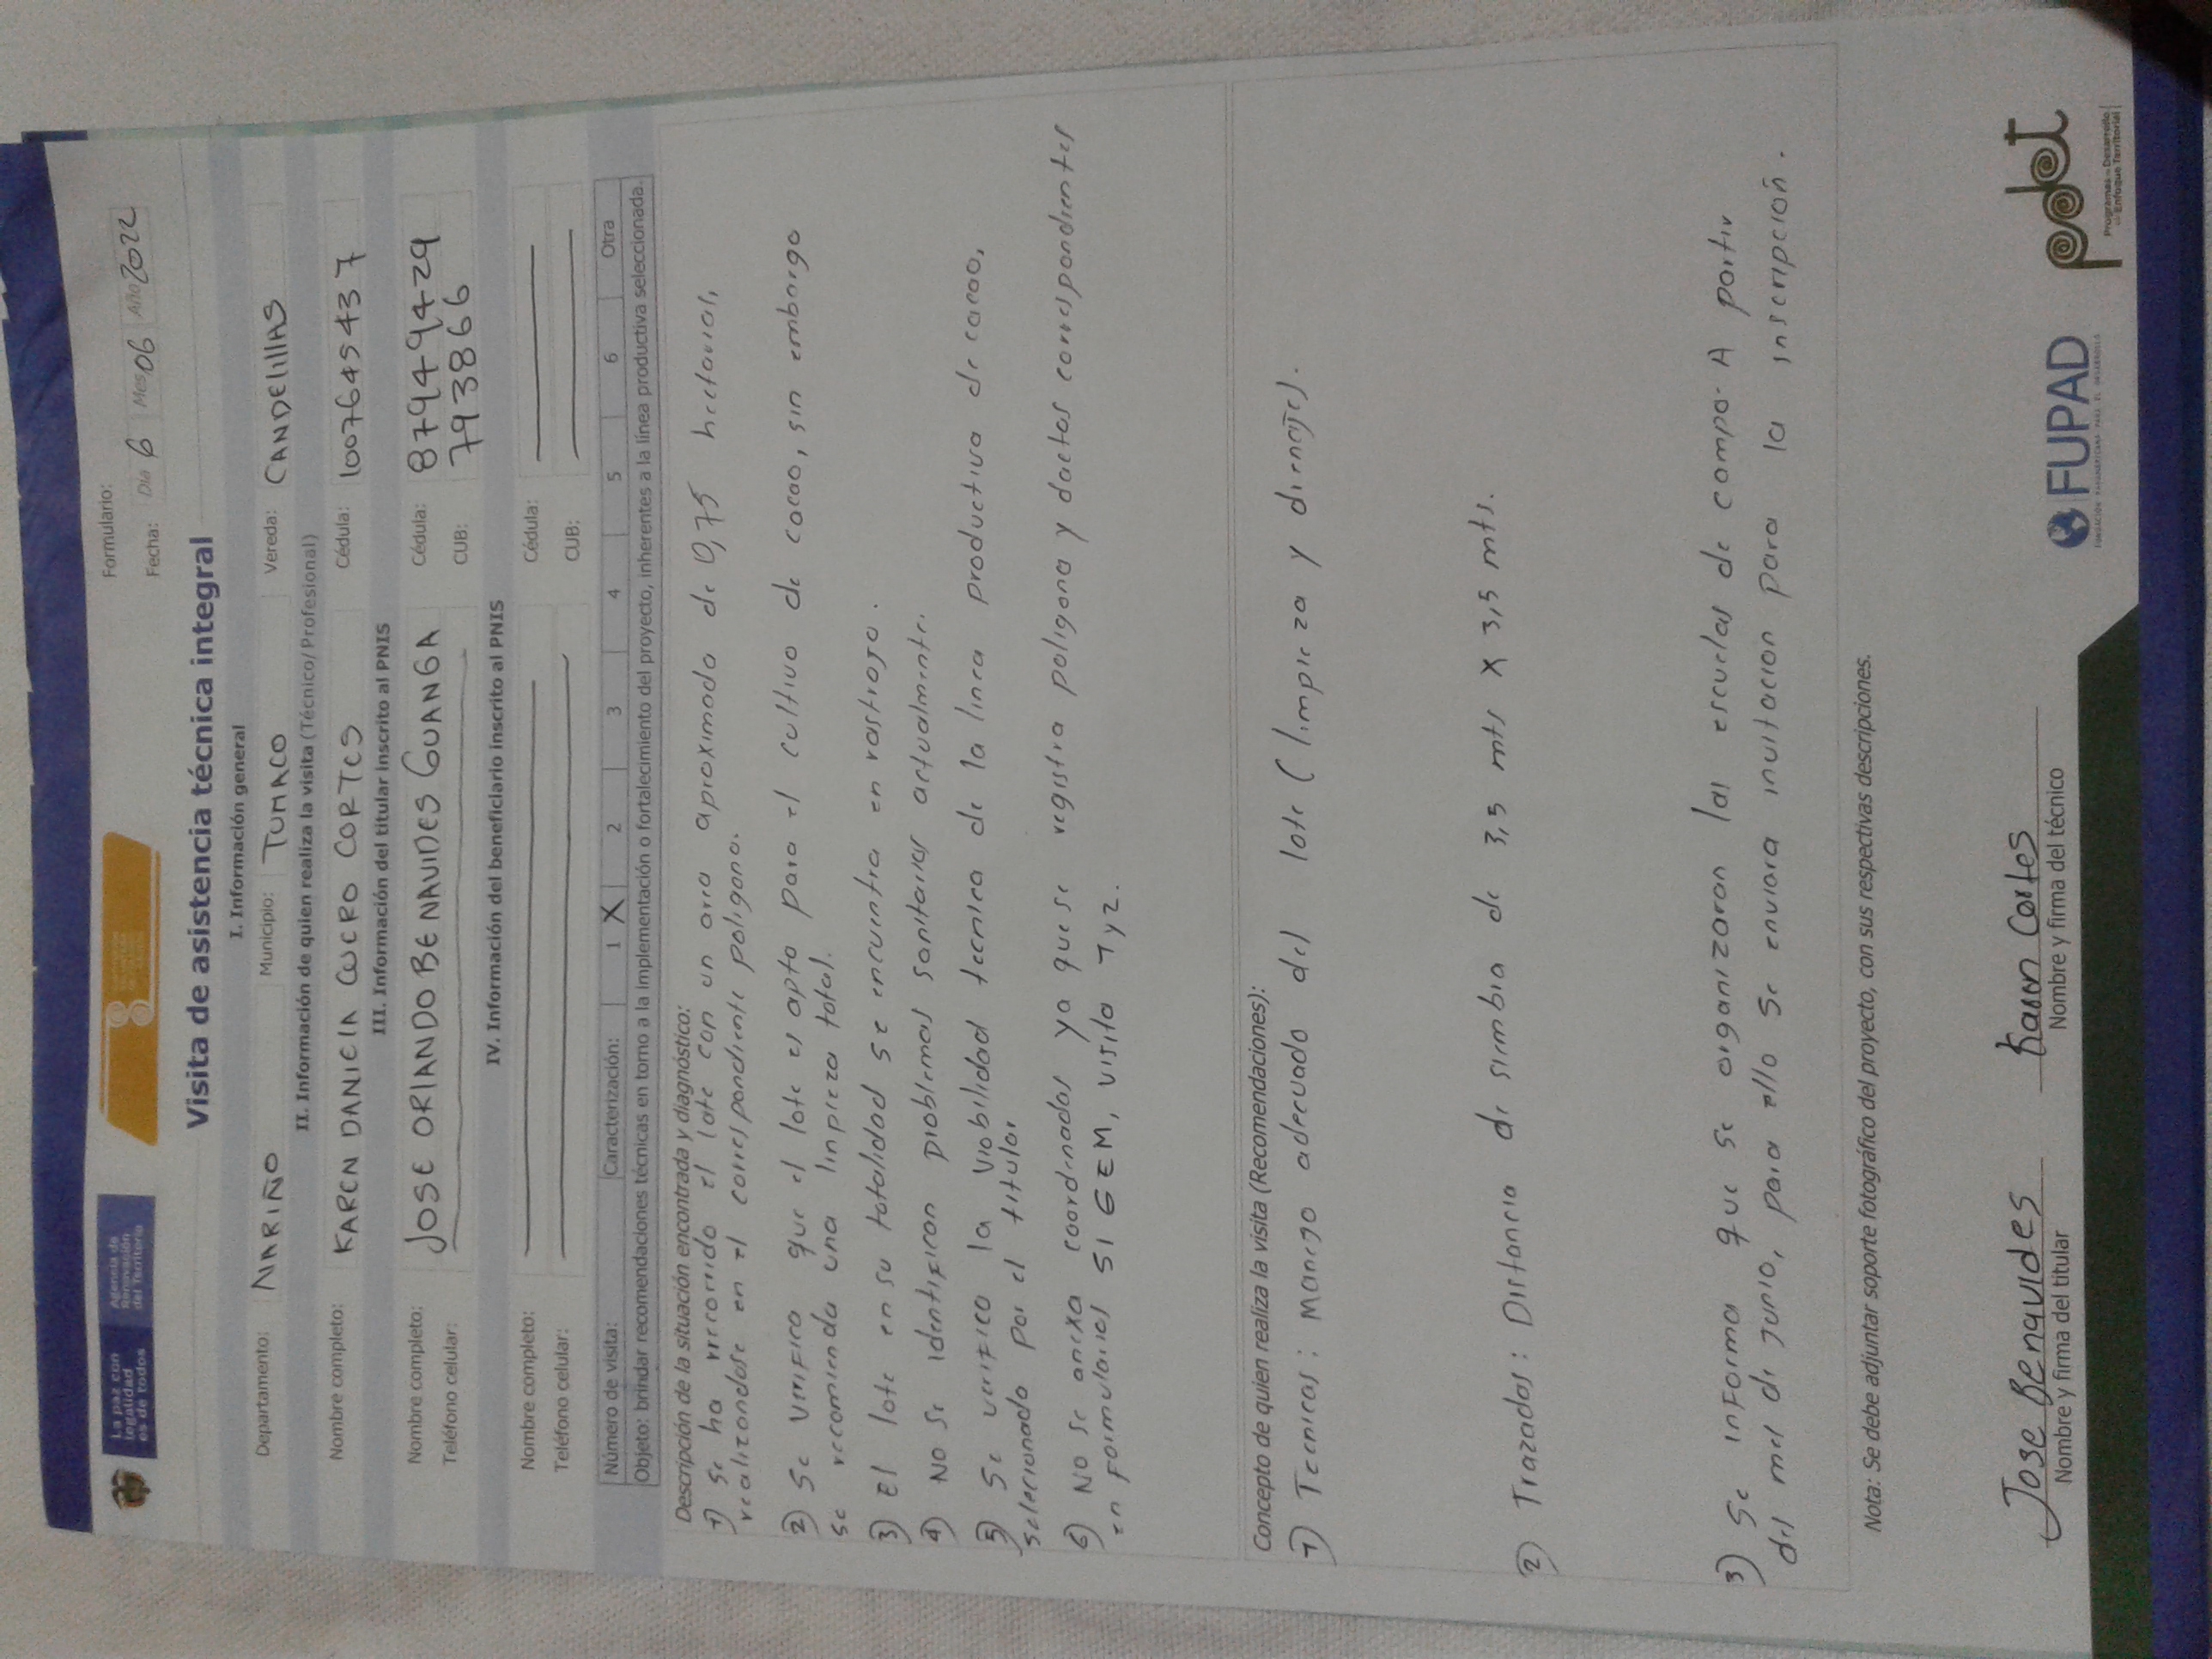 La paz con
legalidad
es de todos
Agencia de
Renovación
del Territorio
Formulario:
Fecha: Día 6 Mes 06 Año 2022
Visita de asistencia técnica integral
I. Información general
Departamento: NARIÑO Municipio: TUMACO Vereda: CANDElillAS
II. Información de quien realiza la visita (Técnico/Profesional)
Nombre completo: KAREN DANIElA CUERO CORTES Cédula: 1007645437
III. Información del titular inscrito al PNIS
Nombre completo: JOSE ORlANDO BENAVIDES GUANGA Cédula: 87949429
Teléfono celular: CUB: 793866
IV. Información del beneficiario inscrito al PNIS
Nombre completo: Cédula:
Teléfono celular: CUB:
Número de visita: Caracterización: 1 X 2 3 4 5 6 Otra
Objeto: brindar recomendaciones técnicas en torno a la implementación o fortalecimiento del proyecto, inherentes a la línea productiva seleccionada.
Descripción de la situación encontrada y diagnóstico:
1) Se ha recorrido el lote con un area aproximado de 0,75 hectarias,
realizandose en el correspondiente poligono.
2) Se verifico que el lote es apto para el cultivo de cacao, sin embargo
se recomienda una linpieza total.
3) El lote en su totalidad se encuentra en rastrojo.
4) No se identifican problemas sanitarias actualmente.
5) Se verifico la viabilidad tecnica de la linea productiva de cacao,
selecionado por el titular
6) No se anexa coordenadas ya que se registra poligono y dactos correspondientes
en formularios SIGEM, visita 1 y 2.
Concepto de quien realiza la visita (Recomendaciones):
1) Tecnicas: Manejo adecuado del lote (limpieza y drenajes).
2) Trazados: Distancia de siembra de 3,5 mts X 3,5 mts.
3) Se informa que se organizaran las escuelas de campo. A partir
del mes de junio, para ello se enviara invitacion para la inscripcion.
Nota: Se debe adjuntar soporte fotográfico del proyecto, con sus respectivas descripciones.
Jose Benavides Karen Cortes
Nombre y firma del titular Nombre y firma del técnico
FUPAD
FUNDACIÓN PANAMERICANA PARA EL DESARROLLO
pdet
Programas de Desarrollo
con Enfoque Territorial